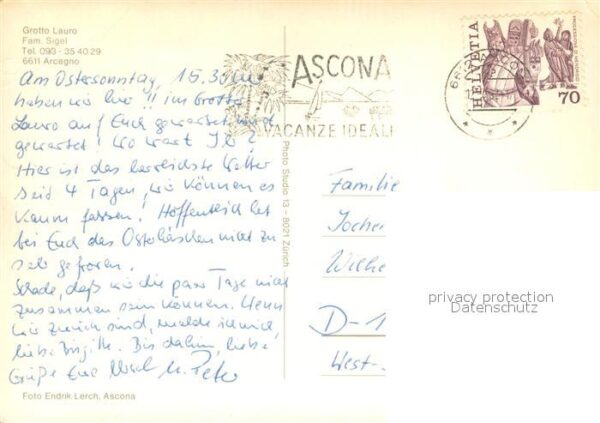 Grotto Lauro
Fam. Sigel
Tel. 093 - 35 40 29
6611 Arcegno
Am Ostersonntag, 15.30 Uhr
haben wir hier !! im Grotto
Lauro auf Euch gewartet und
gewartet! Wo wart Ihr?
Hier ist das herrlichste Wetter
seit 4 Tagen, wir können es
kaum fassen! Hoffentlich hat
bei Euch das Osterhäschen nicht zu
sehr gefroren.
Schade, daß wir die paar Tage nicht
zusammen sein können. Wenn
wir zurück sind, melde ich mich,
liebe Birgitte. Bis dahin, liebe
Grüße Eure Ursel u. Peter
Foto Endrik Lerch, Ascona
Photo Studio 13 - 8021 Zürich
ASCONA
VACANZE IDEALI
HELVETIA
PROCESSIONE DI MENDRISIO
70
Familie
Jochen
Wilhe
D-1
West-
privacy protection
Datenschutz